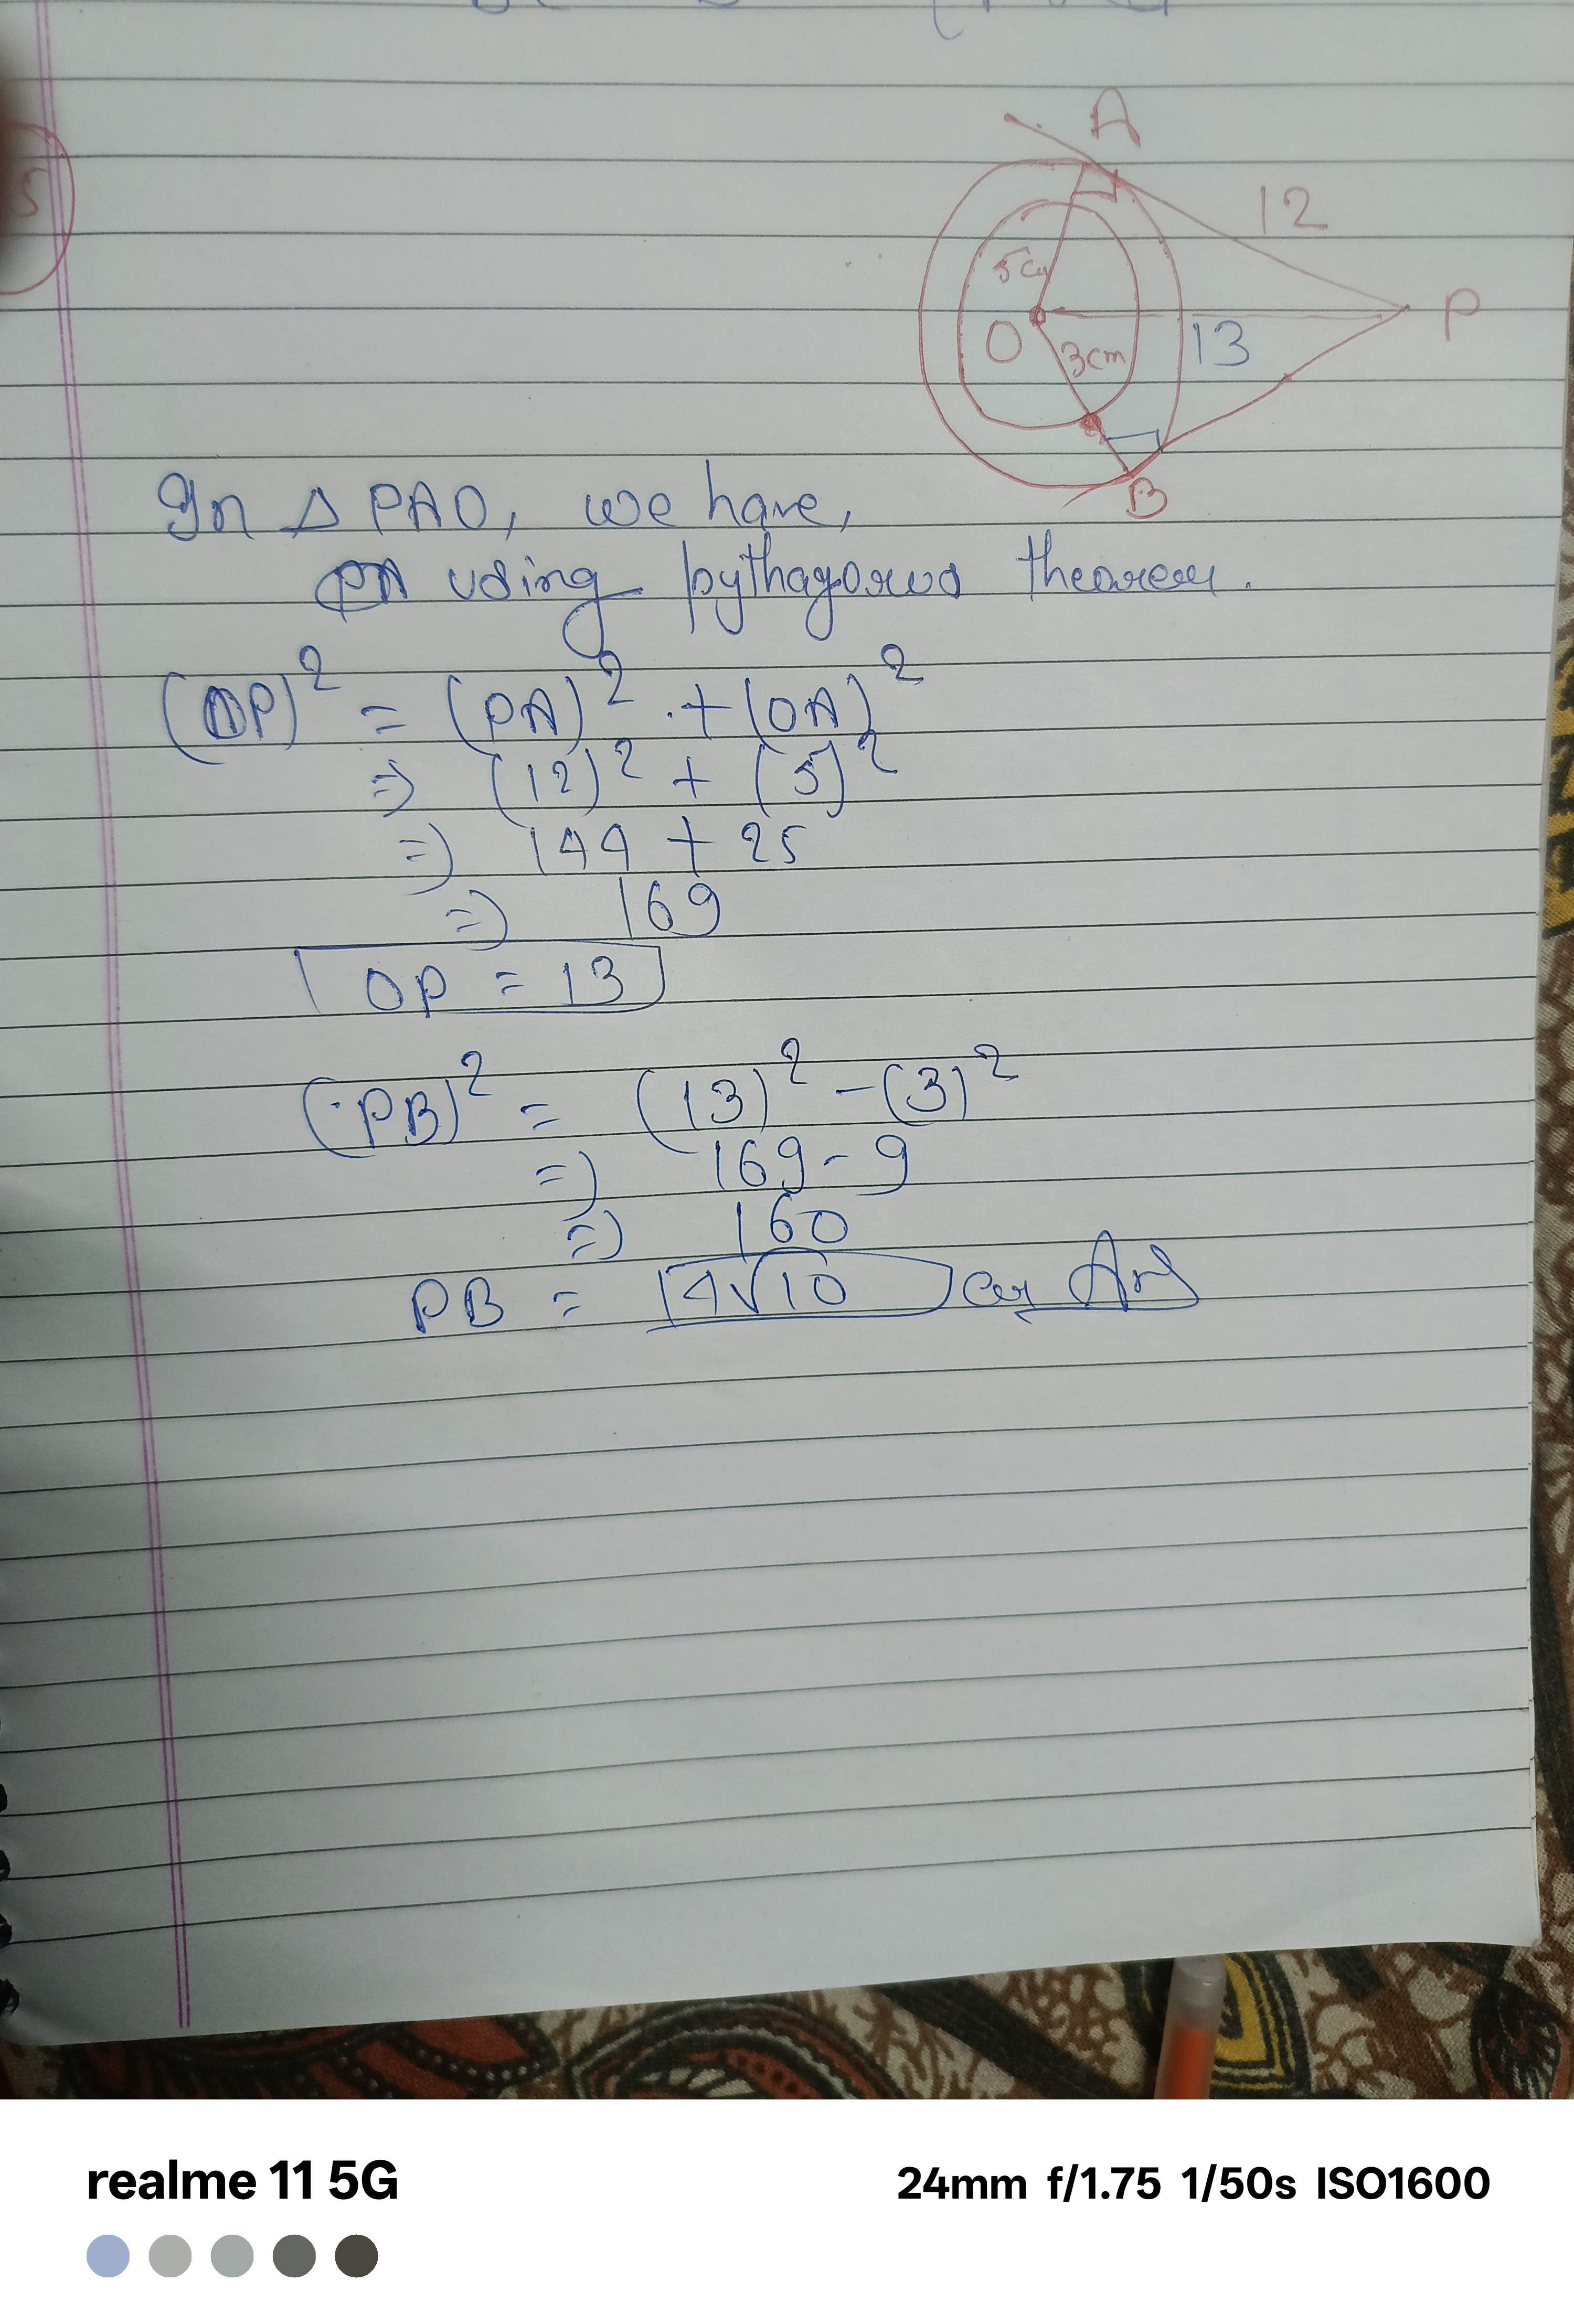 A
12
5cm
P
O
13
3cm
B
In △ PAO, we have,
using pythagorus theorem.
(OP)² = (PA)² + (OA)²
⇒ (12)² + (5)²
⇒ 144 + 25
⇒ 169
OP = 13
(PB)² = (13)² - (3)²
⇒ 169 - 9
⇒ 160
PB = 4√10 cm Ans
realme 11 5G
24mm f/1.75 1/50s ISO1600